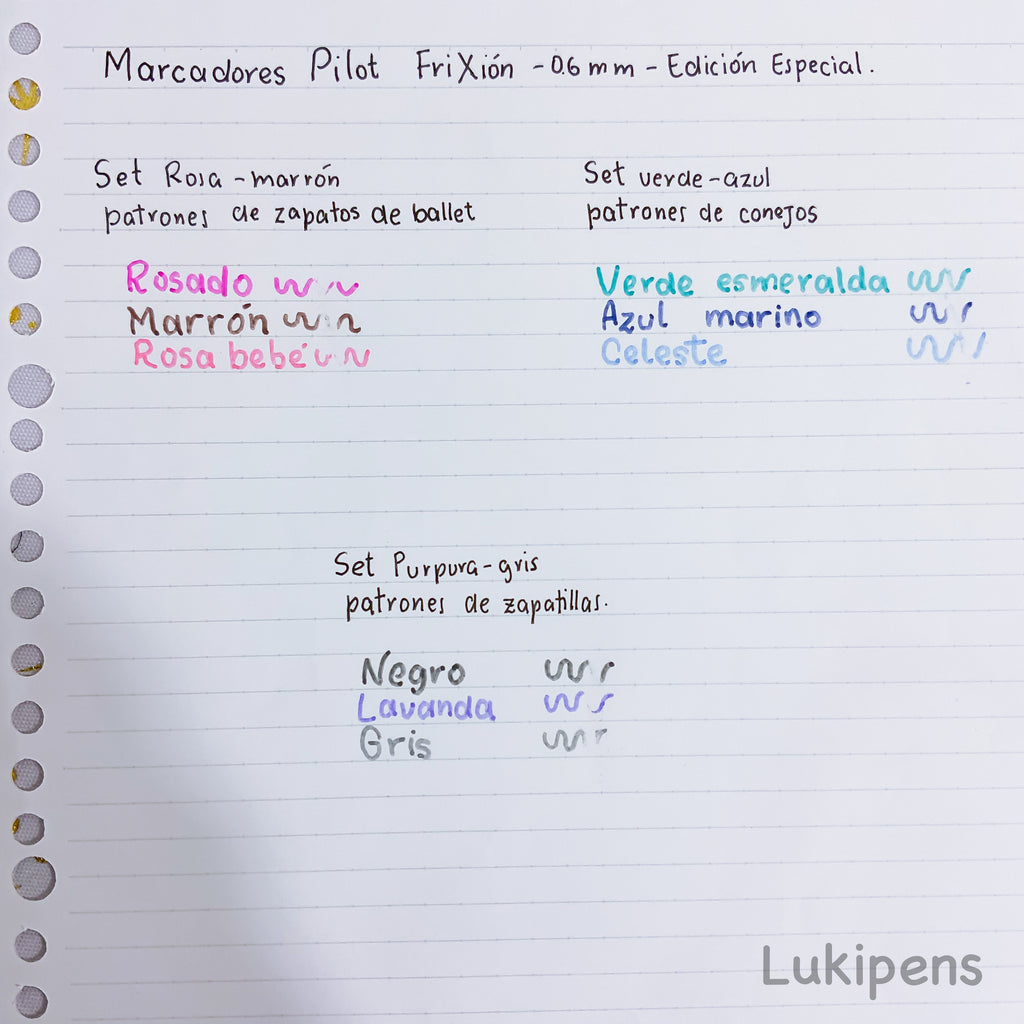 Marcadores Pilot FriXión - 0.6 mm - Edición Especial.
Set Rosa - marrón
patrones de zapatos de ballet
Rosado
Marrón
Rosa bebé
Set verde - azul
patrones de conejos
Verde esmeralda
Azul marino
Celeste
Set Purpura - gris
patrones de zapatillas.
Negro
Lavanda
Gris
Lukipens